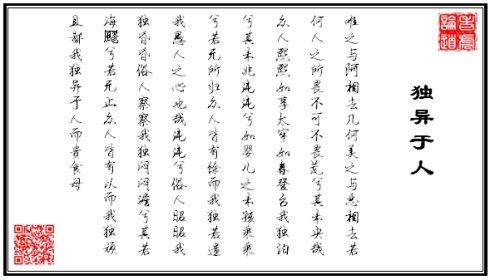 独异于人
唯之与阿相去几何美之与恶相去若
何人之所畏不可不畏荒兮其未央哉
众人熙熙如享太牢如春登台我独泊
兮其未兆沌沌兮如婴儿之未孩乘乘
兮若无所归众人皆有馀而我独若遗
我愚人之心也哉沌沌兮俗人昭昭我
独昏昏俗人察察我独闷闷澹兮其若
海飂兮若无止众人皆有以而我独顽
且鄙我独异于人而贵食母